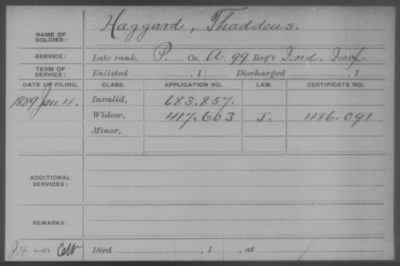 Haggard, Thaddeus.
NAME OF SOLDIER:
SERVICE: Late rank, P. Co. A. 99 Reg't Ind. Inf.
TERM OF SERVICE: Enlisted , 1 Discharged , 1
DATE OF FILING. CLASS. APPLICATION NO. LAW. CERTIFICATE NO.
1889 Jan 4. Invalid, 683.857.
Widow, 417.603 J. 486.091
Minor,
ADDITIONAL SERVICES:
REMARKS:
Died , 1 , at